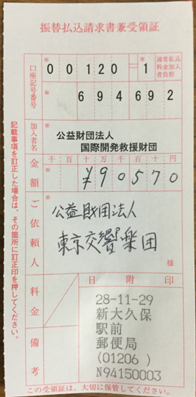 振替払込請求書兼受領証
口座記号番号
00120-1
払込料金加入者負担
694692
加入者名
公益財団法人
国際開発救援財団
金額
千百十万千百十円
¥90570
ご依頼人
公益財団法人
東京交響楽団
様
料金
日附印
備考
28-11-29
新大久保
駅前
郵便局
(01206)
N94150003
記載事項を訂正した場合は、その箇所に訂正印を押してください。
この受領証は、大切に保管してください。